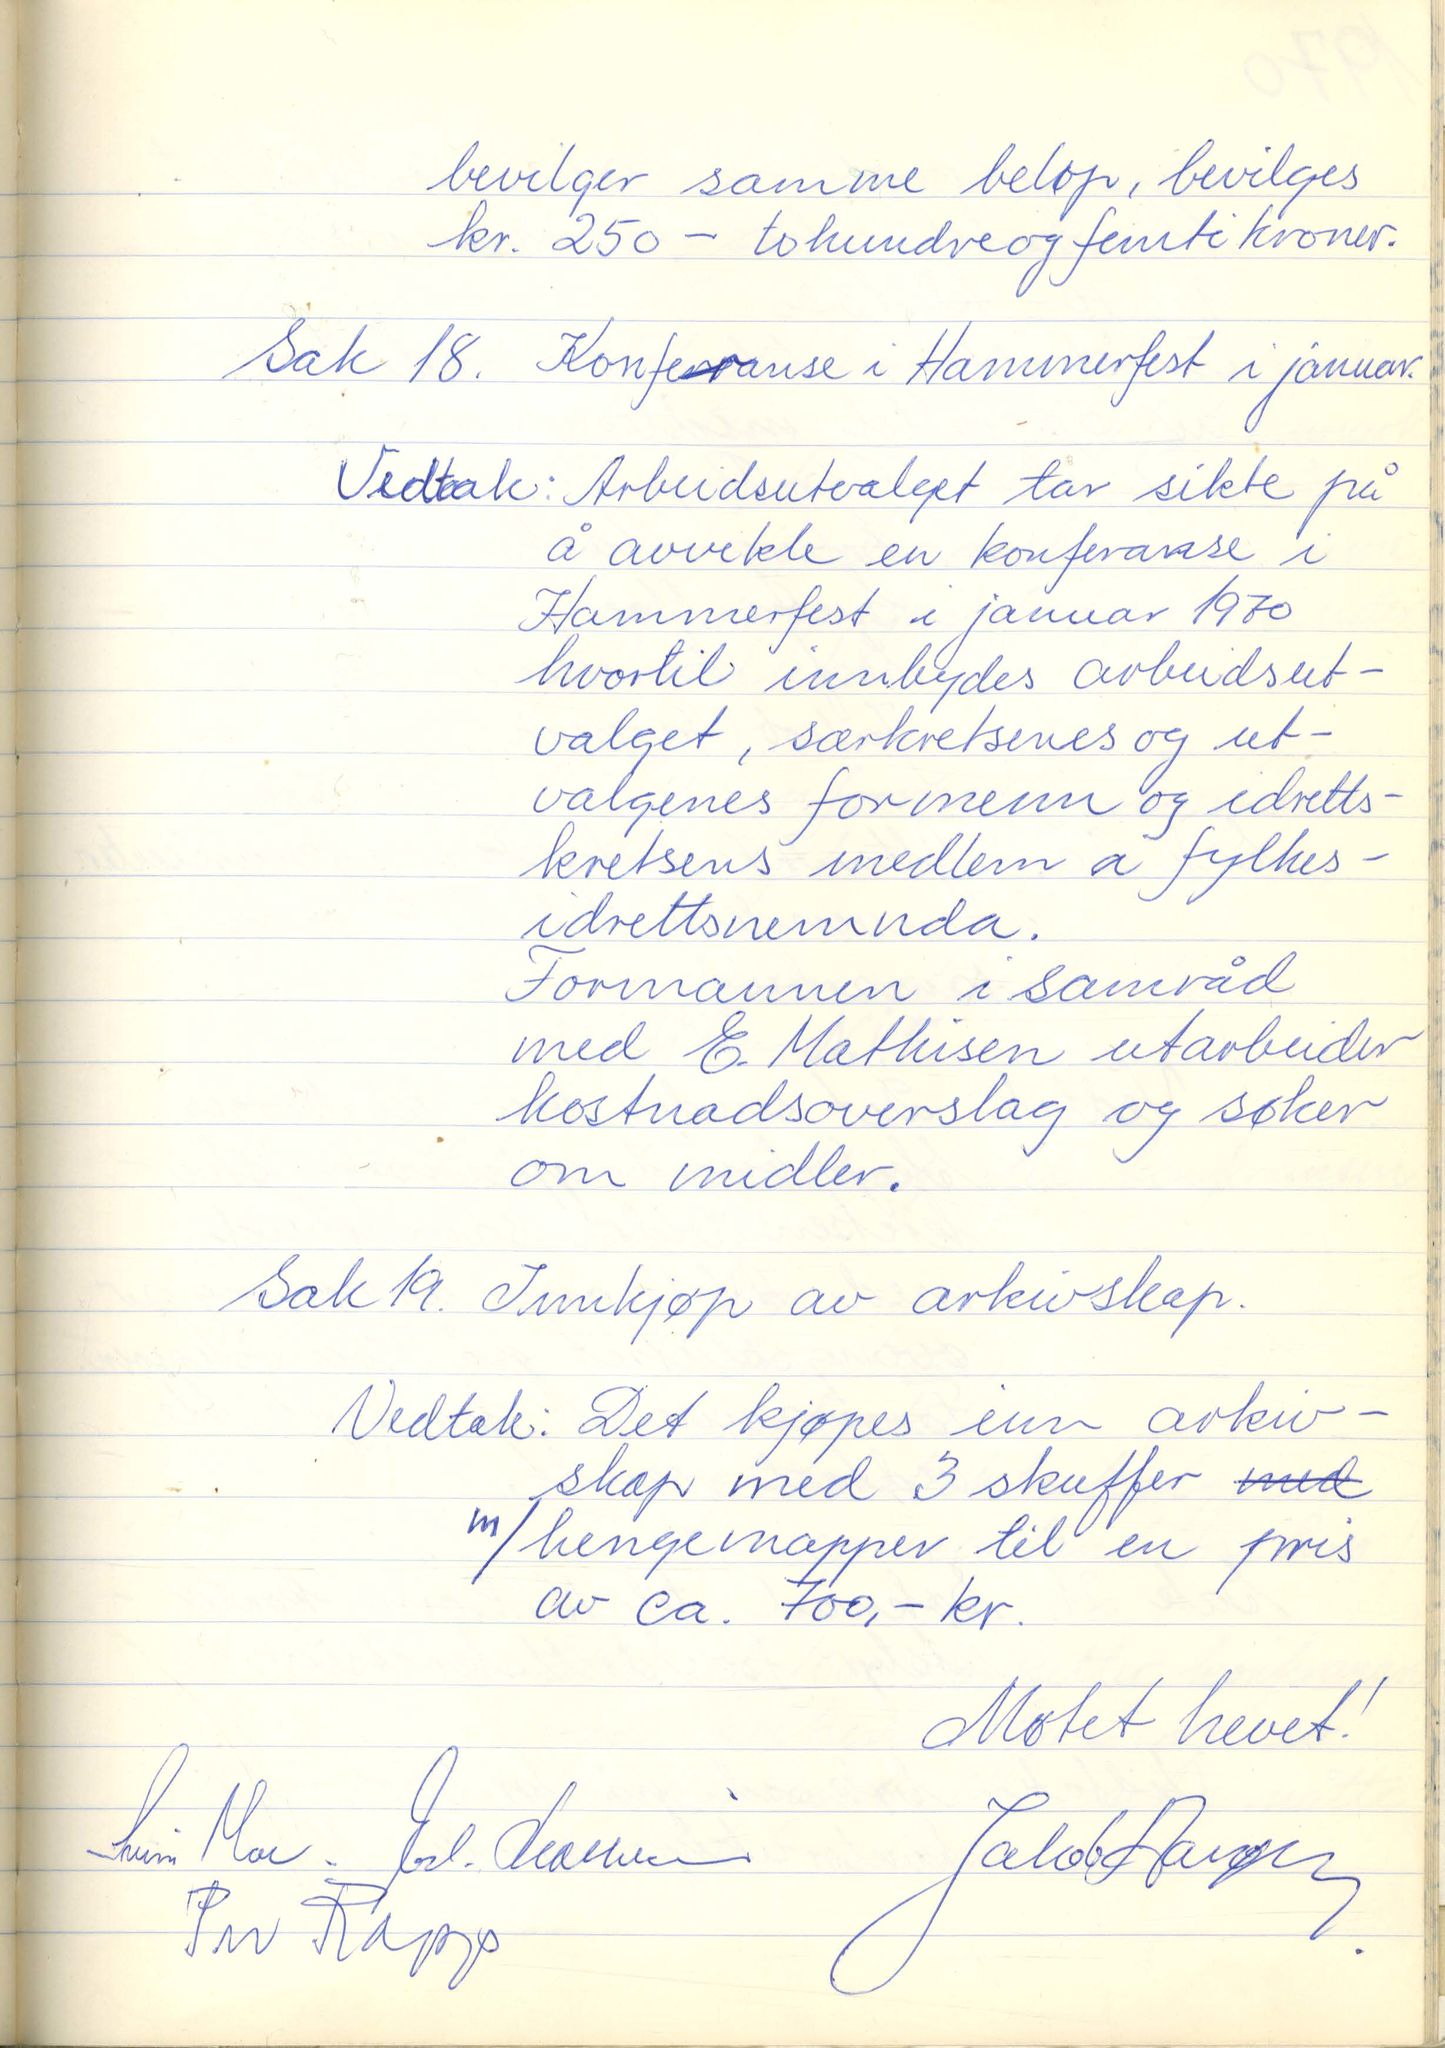 bevilger samme beløp, bevilges
kr. 250 - tohundreogfemti kroner.
Sak 18. Konferanse i Hammerfest i januar.
Vedtak: Arbeidsutvalget tar sikte på
å avvikle en konferanse i
Hammerfest i januar 1970
hvortil innbydes arbeidsut-
valget, særkretsenes og ut-
valgenes formenn og idretts-
kretsens medlem a fylkes-
idrettsnemnda.
Formannen i samråd
med E. Mathisen utarbeider
kostnadsoverslag og søker
om midler.
Sak 19. Innkjøp av arkivskap.
Vedtak: Det kjøpes inn arkiv-
skap med 3 skuffer med
m/ hengemapper til en pris
av ca. 700,- kr.
Møtet hevet!
Moe
Jakob